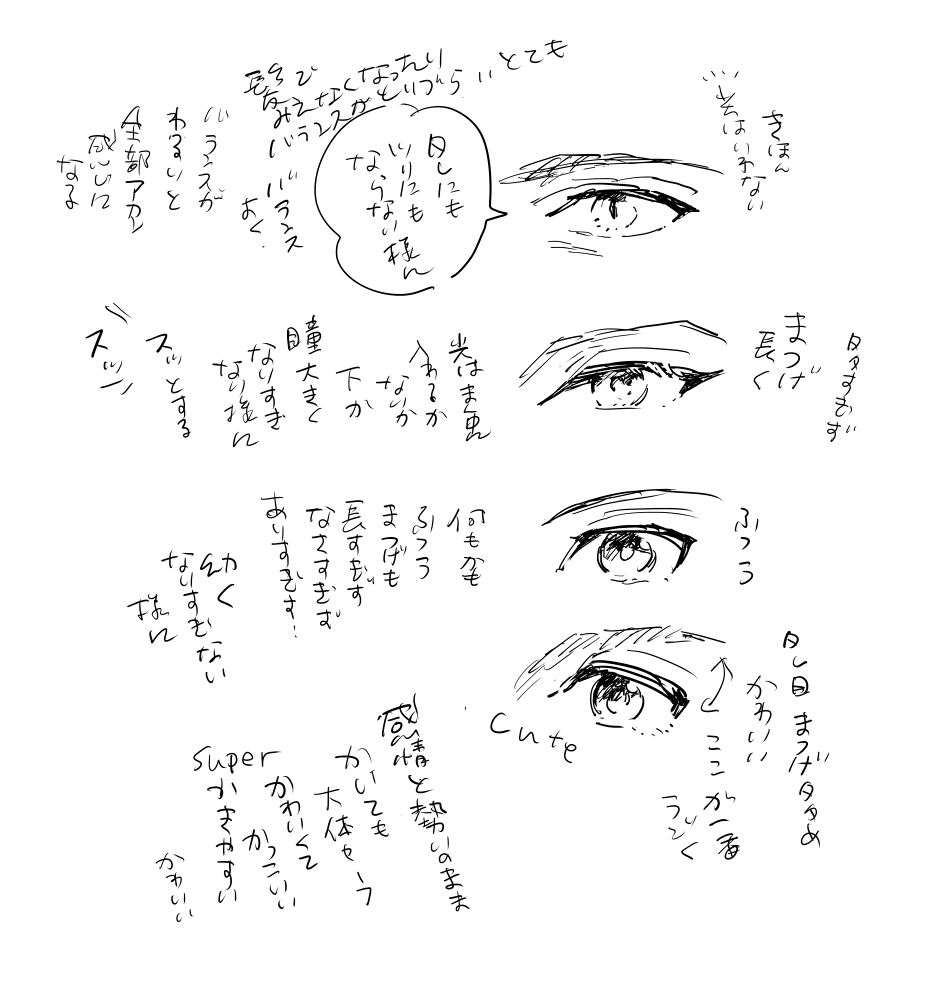 きほん
光はいれない
とても
髪で
みえなくなったり
バランスがとりづらい
タレにも
ツリにも
ならない様に
バランス
よく
バランスが
わるいと
全部アカン
感じに
なる
多すぎず
まつげ
長く
光はま悪
入れるか
ないか
下か
瞳大きく
なりすぎ
ない様に
スッとする
スッ
ふつう
何もかも
ふつう
まつげも
長すぎず
なさすぎず
ありすぎず!
幼く
なりすぎない
様に
タレ目まつげ多め
かわいい
ここが一番
ラク
cute
感情と勢いのまま
かいても
大体セーフ
かわいくて
かっこいい
super
かきやすい
かわいい